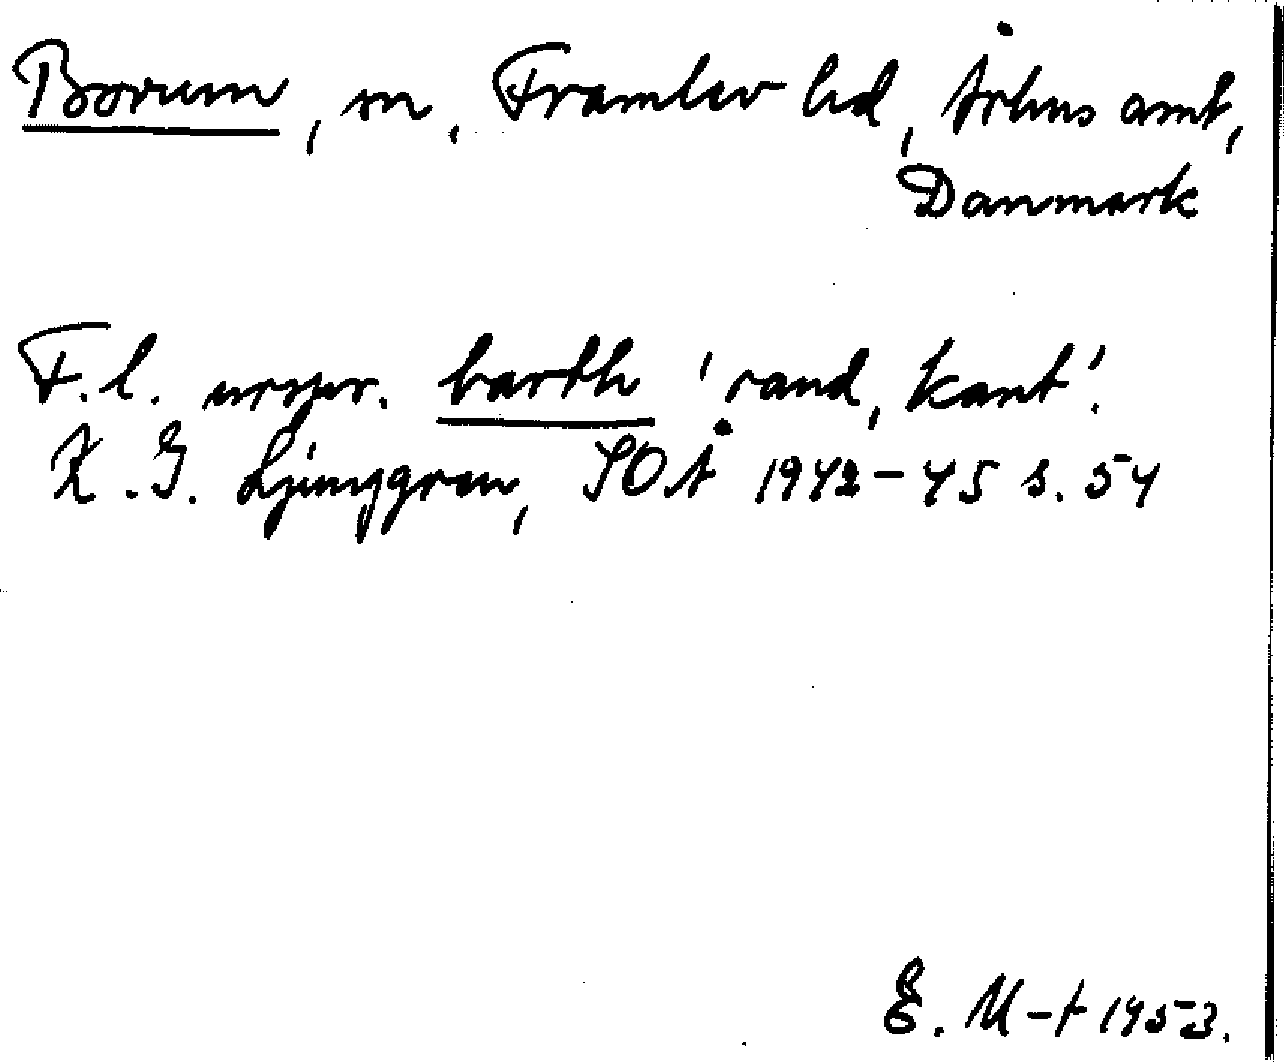 Borum, sn, Framlev hd, Århus amt,
Danmark
F.l. urspr. barth 'rand, kant'.
K.G. Ljunggren, SOÅ 1942-45 s. 54
E. M-t 1953.